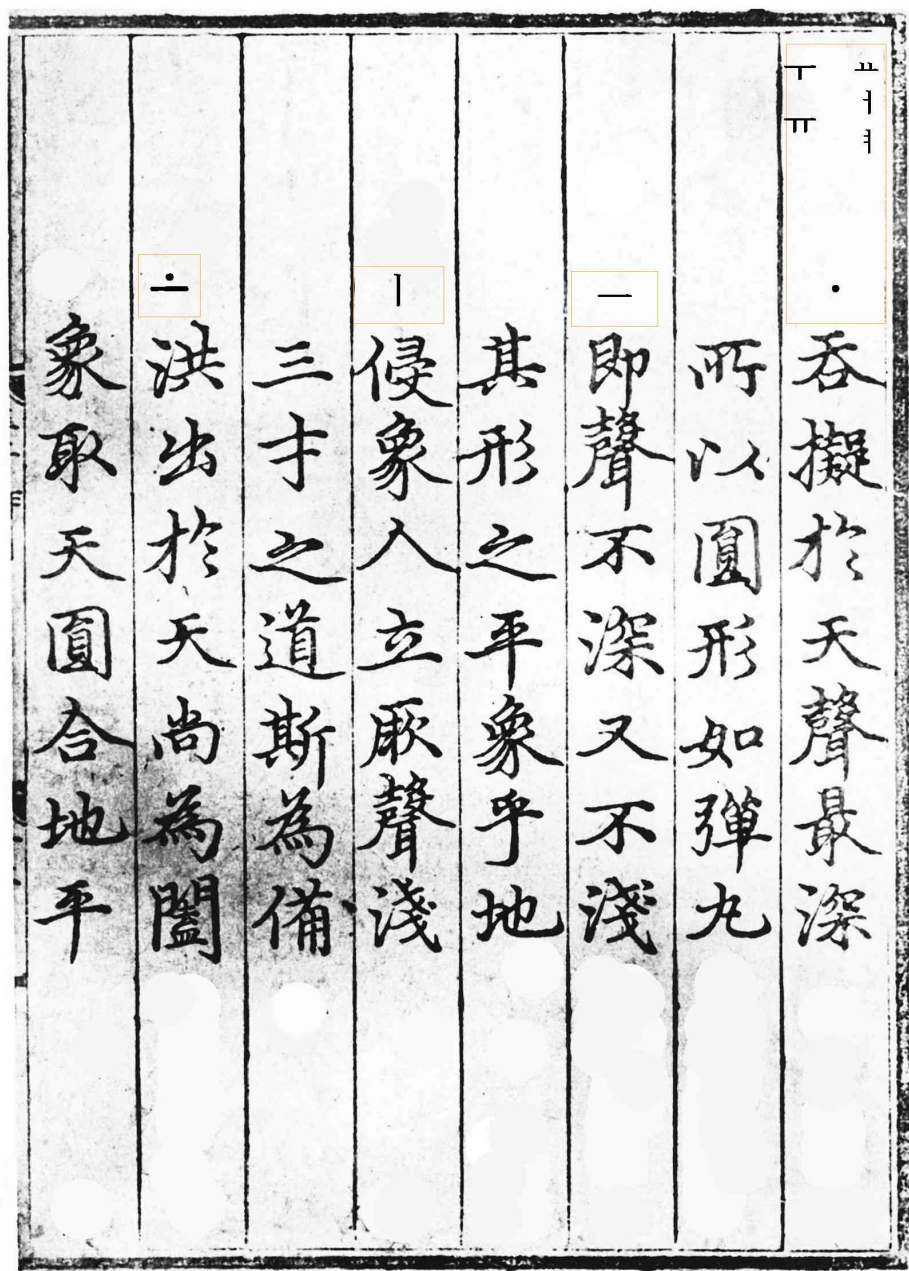 ㅛㅓㅕ
ㅜㅠ
ㆍ吞擬於天聲最深
所以圓形如彈丸
ㅡ即聲不深又不淺
其形之平象乎地
ㅣ侵象人立厥聲淺
三才之道斯為備
ㅗ洪出於天尚為闔
象取天圓合地平